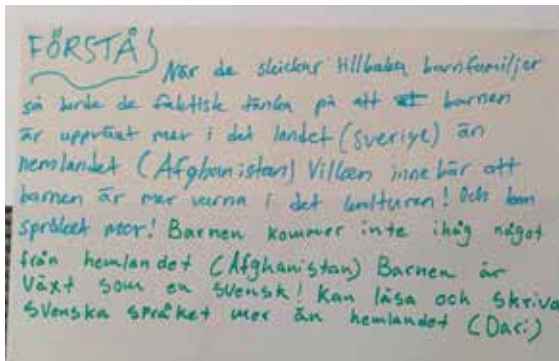 FÖRSTÅ
När de skickar tillbaka barnfamiljer
så borde de faktisk tänka på att barnen
är uppväxt mer i det landet (Sverige) än
hemlandet (Afghanistan) Vilken innebär att
barnen är mer vana i det kulturen! Och kan
språket mer! Barnen kommer inte ihåg något
från hemlandet (Afghanistan) Barnen är
växt som en svensk! Kan läsa och skriva
svenska språket mer än hemlandet (Dari)